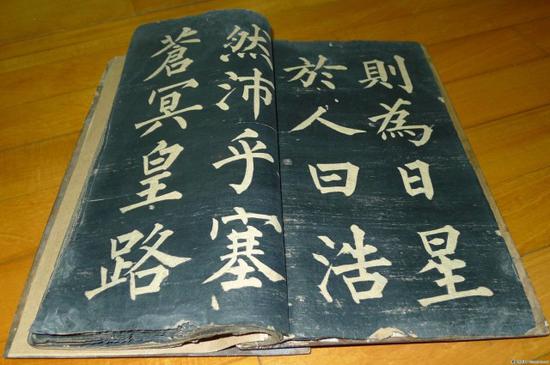 則為日星
於人曰浩
然沛乎塞
蒼冥皇路